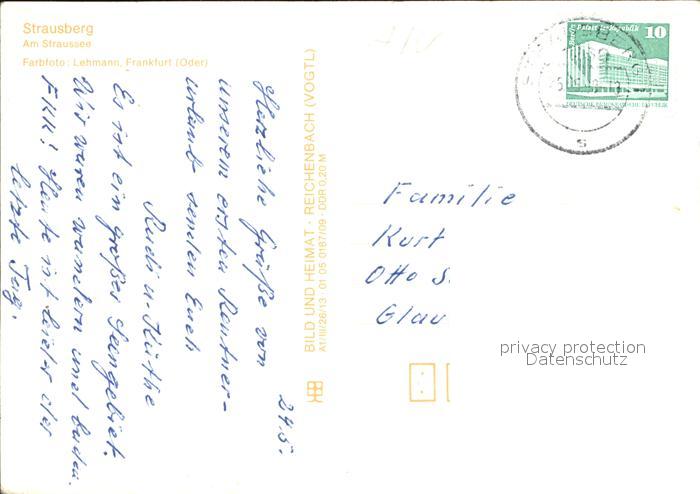 Strausberg
Am Straussee
Farbfoto: Lehmann, Frankfurt (Oder)
24.5.
Herzliche Grüße von
unserem ersten Rentner-
urlaub senden Euch
Rudi u. Käthe
Es ist ein großes Seengebiet.
Wir waren wandern und baden.
FKK! Heute ist leider der
letzte Tag.
BILD UND HEIMAT · REICHENBACH (VOGTL)
A1/III/26/13 · 01 05 0187/09 · DDR 0,20 M
10
Berlin, Palast der Republik
DEUTSCHE DEMOKRATISCHE REPUBLIK
S
Familie
Kurt
Otto S.
Glau
privacy protection
Datenschutz